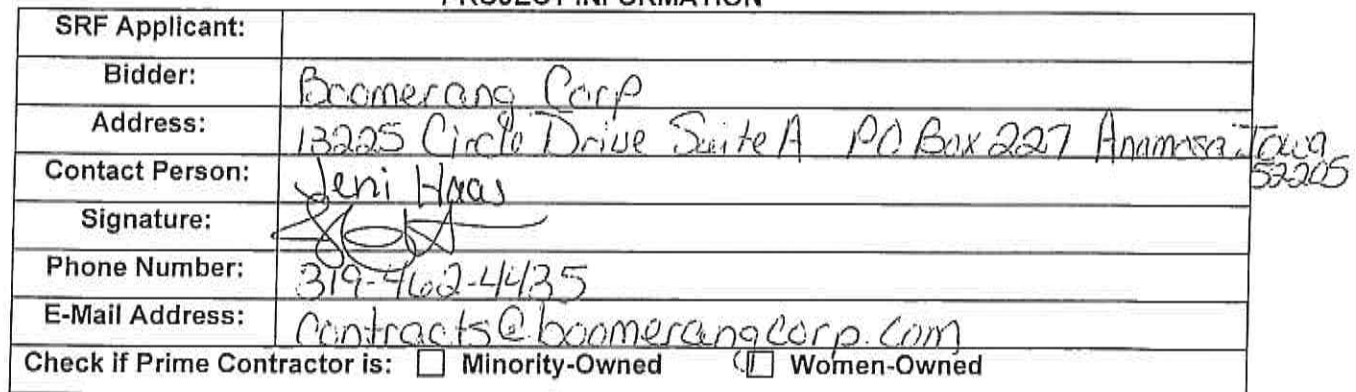 PROJECT INFORMATION
SRF Applicant:
Bidder: Boomerang Corp
Address: 13225 Circle Drive Suite A PO Box 227 Anamosa Iowa
52205
Contact Person: Jeni Haas
Signature:
Phone Number: 319-462-4435
E-Mail Address: contracts@boomerangcorp.com
Check if Prime Contractor is: ☐ Minority-Owned ☐ Women-Owned